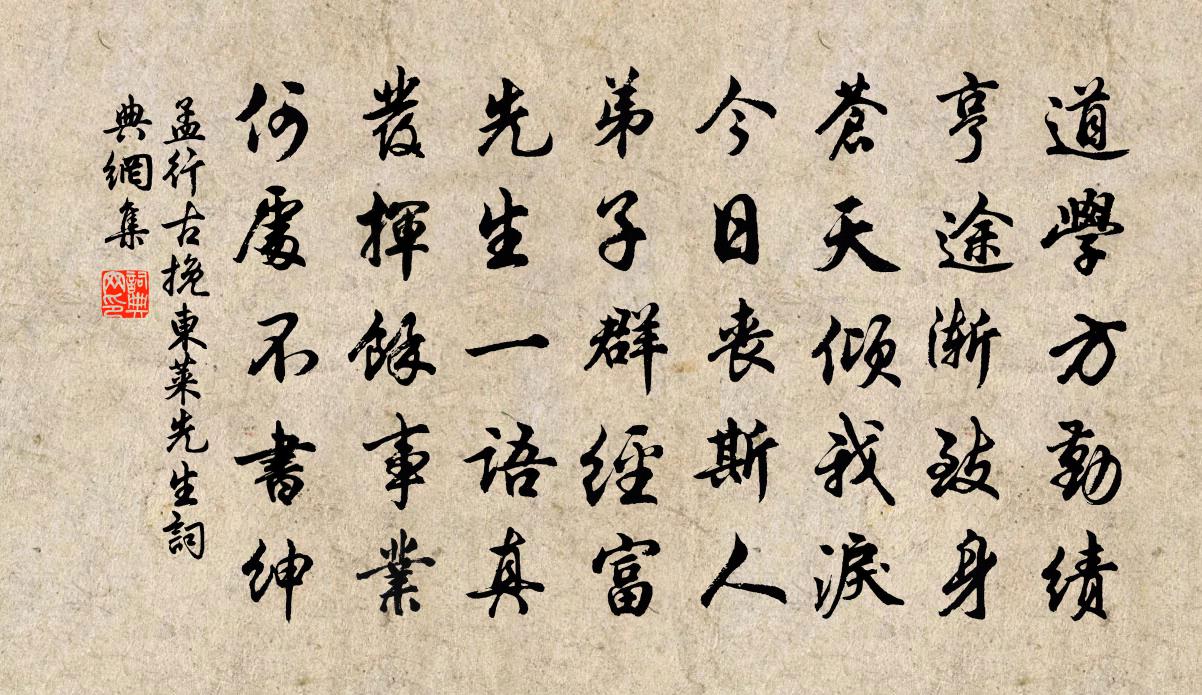 道學方勤績
亨途漸致身
蒼天傾我淚
今日喪斯人
弟子群經富
先生一語真
發揮餘事業
何處不書紳
孟行古挽東萊先生詞
典網集
詞典网印